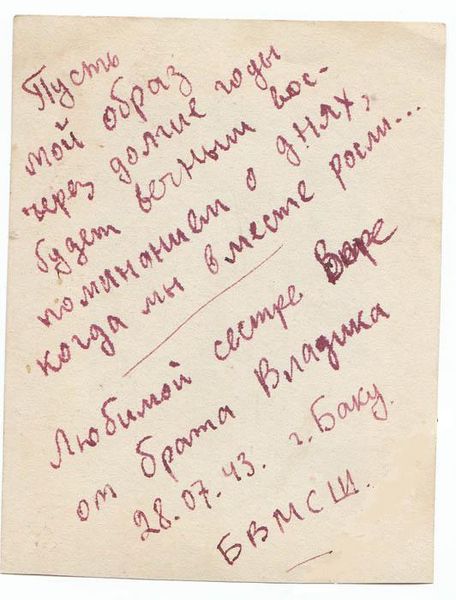 Пусть
мой образ
через долгие годы
будет вечным вос-
поминанием о днях,
когда мы вместе росли...
Любимой сестре Вере
от брата Владика
28.07.43. г. Баку.
БВМСШ.